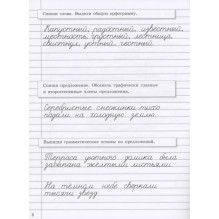 Спиши слова. Выдели общую орфограмму.
Капустный, радостный, известный,
местность, грустный, лестница,
свистнул, устный, честный.
Спиши предложение. Обозначь графически главные
и второстепенные члены предложения.
Серебристые снежинки тихо
падали на холодную землю.
Выпиши грамматические основы из предложений.
Терраса уютного домика была
завалена жёлтыми листьями.
На тёмном небе сверкали
тысячи звёзд.